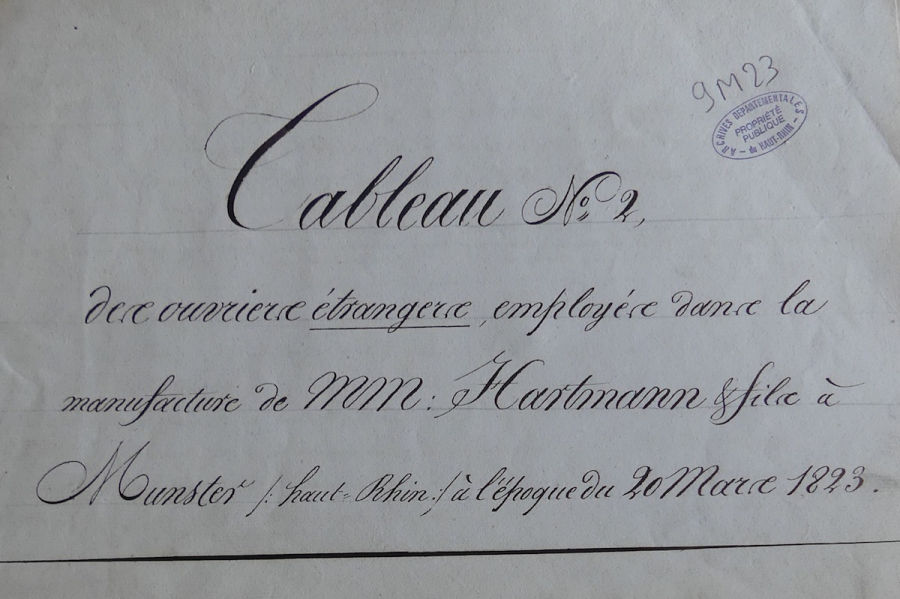 9M23
ARCHIVES DÉPARTEMENTALES
PROPRIÉTÉ
PUBLIQUE
- du HAUT-RHIN -
Tableau No. 2,
des ouvriers étrangers, employés dans la
manufacture de MM: Hartmann & fils à
Munster /: haut=Rhin :/ à l'époque du 20 Mars 1823.